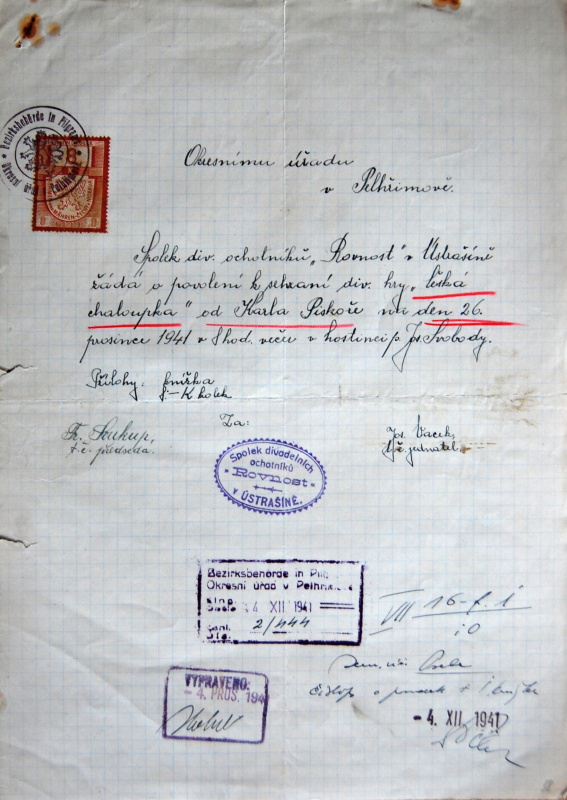 Bezirksbehörde in Pilgrams
Okresní úřad Pelhřimov
BÖHMEN-MÄHREN
Okresnímu úřadu
v Pelhřimově.
Spolek div. ochotníků „Rovnost" v Ústrašíně
žádá o povolení k sehraní div. hry „Česká
chaloupka" od Karla Piskoře na den 26.
prosince 1941 v 8 hod. večer v hostinci p. Jos. Svobody.
Přílohy: knížka
K kolek
Za:
Fr. Soukup,
t. č. předseda.
Jos. Vacek,
t. č. jednatel.
Spolek divadelních
ochotníků
ROVNOST
V ÚSTRAŠÍNĚ.
Bezirksbehörde in Pil
Okresní úřad v Pelhřimově
4 XII 1941
2/444
VII 16-f. 1
10
VYPRAVENO:
- 4. PROS. 194
- 4. XII. 1941